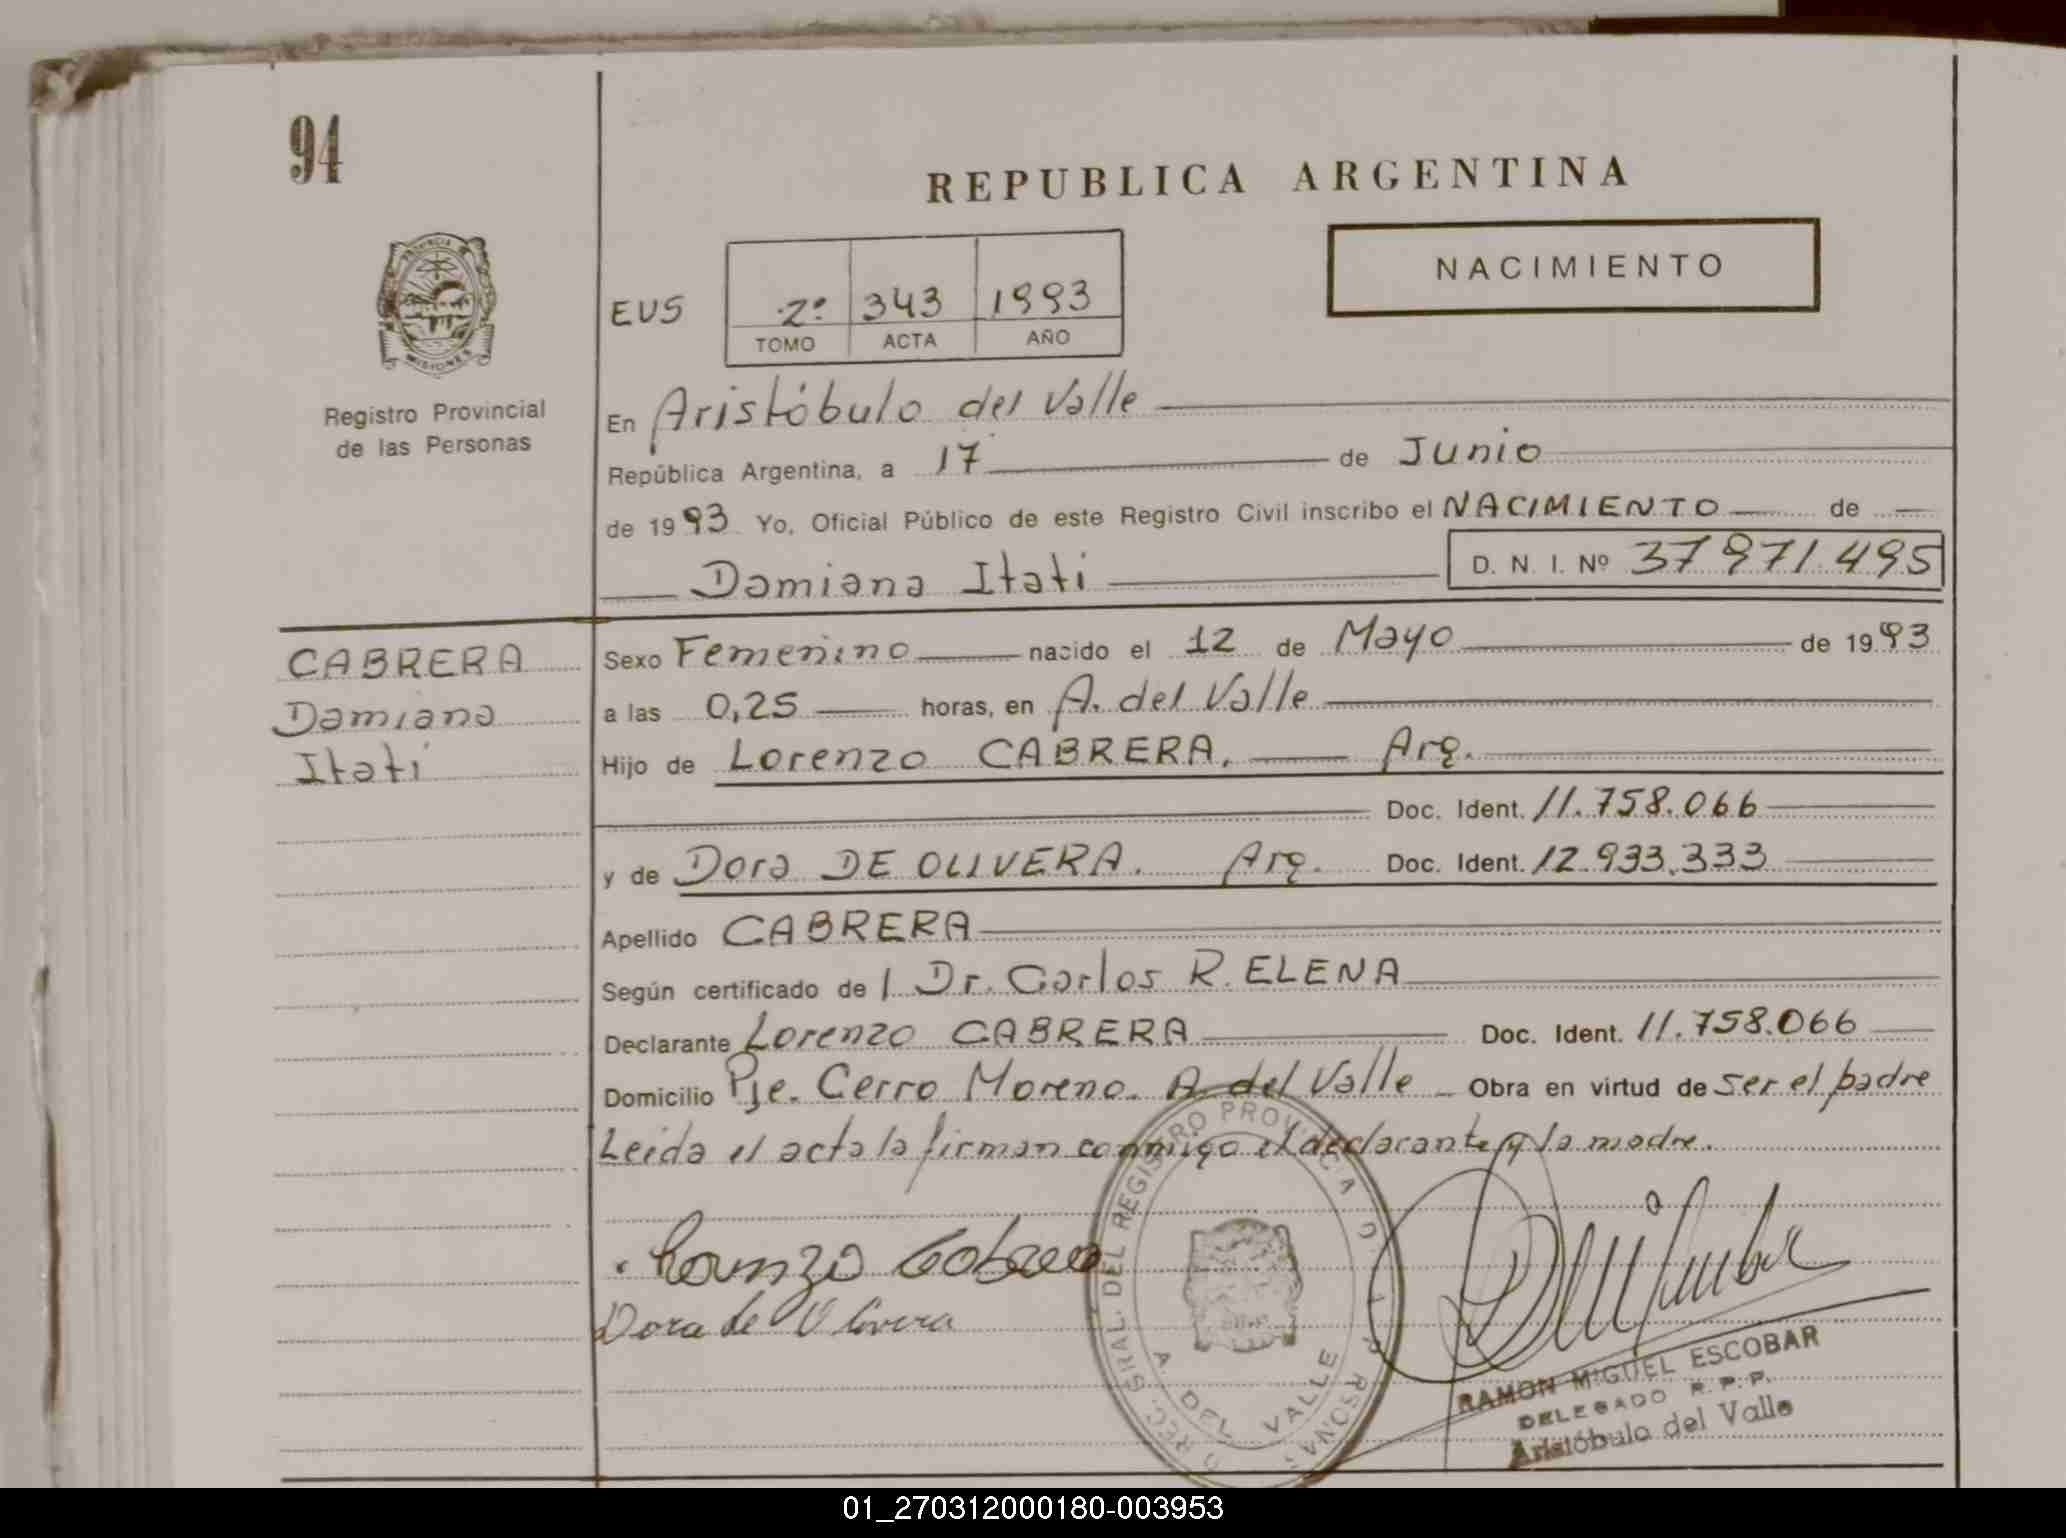 94
REPUBLICA ARGENTINA
PROVINCIA
MISIONES
Registro Provincial
de las Personas
NACIMIENTO
EUS
2º 343 1993
TOMO ACTA AÑO
En Aristóbulo del Valle
República Argentina, a 17 de Junio
de 1993 Yo, Oficial Público de este Registro Civil inscribo el NACIMIENTO de
Damiana Itati D. N. I. Nº 37971.495
CABRERA
Damiana
Itati
Sexo Femenino nacido el 12 de Mayo de 1993
a las 0,25 horas, en A. del Valle
Hijo de Lorenzo CABRERA. Arg.
Doc. Ident. 11.758.066
y de Dora DE OLIVERA. Arg. Doc. Ident. 12.933.333
Apellido CABRERA
Según certificado de l Dr. Carlos R. ELENA
Declarante Lorenzo CABRERA Doc. Ident. 11.758.066
Domicilio Pje. Cerro Moreno. A. del Valle Obra en virtud de ser el padre
Leida el acta la firman conmigo el declarante y la madre.
Lorenzo Cabrera
Dora de Olivera
GRAL. DEL REGISTRO PROVINCIAL
A. DEL VALLE
RAMON MIGUEL ESCOBAR
DELEGADO R.P.P.
Aristóbulo del Valle
01_270312000180-003953